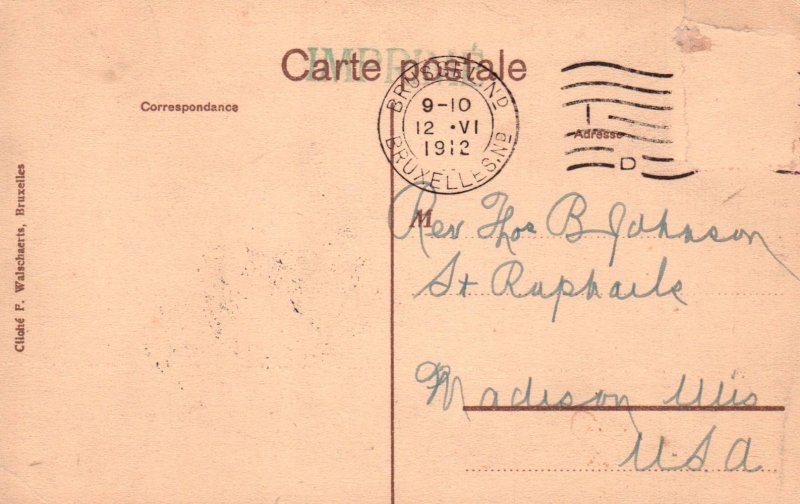 IMPRIMÉ
Carte postale
Correspondance
BRUSSEL.Nᴰ
9-10
12 •VI
1912
BRUXELLES.Nᴰ
I
Adresse
D
M
Rev Thos B Johnson
St Raphaels
Madison Wis
USA
Cliché F. Walschaerts, Bruxelles